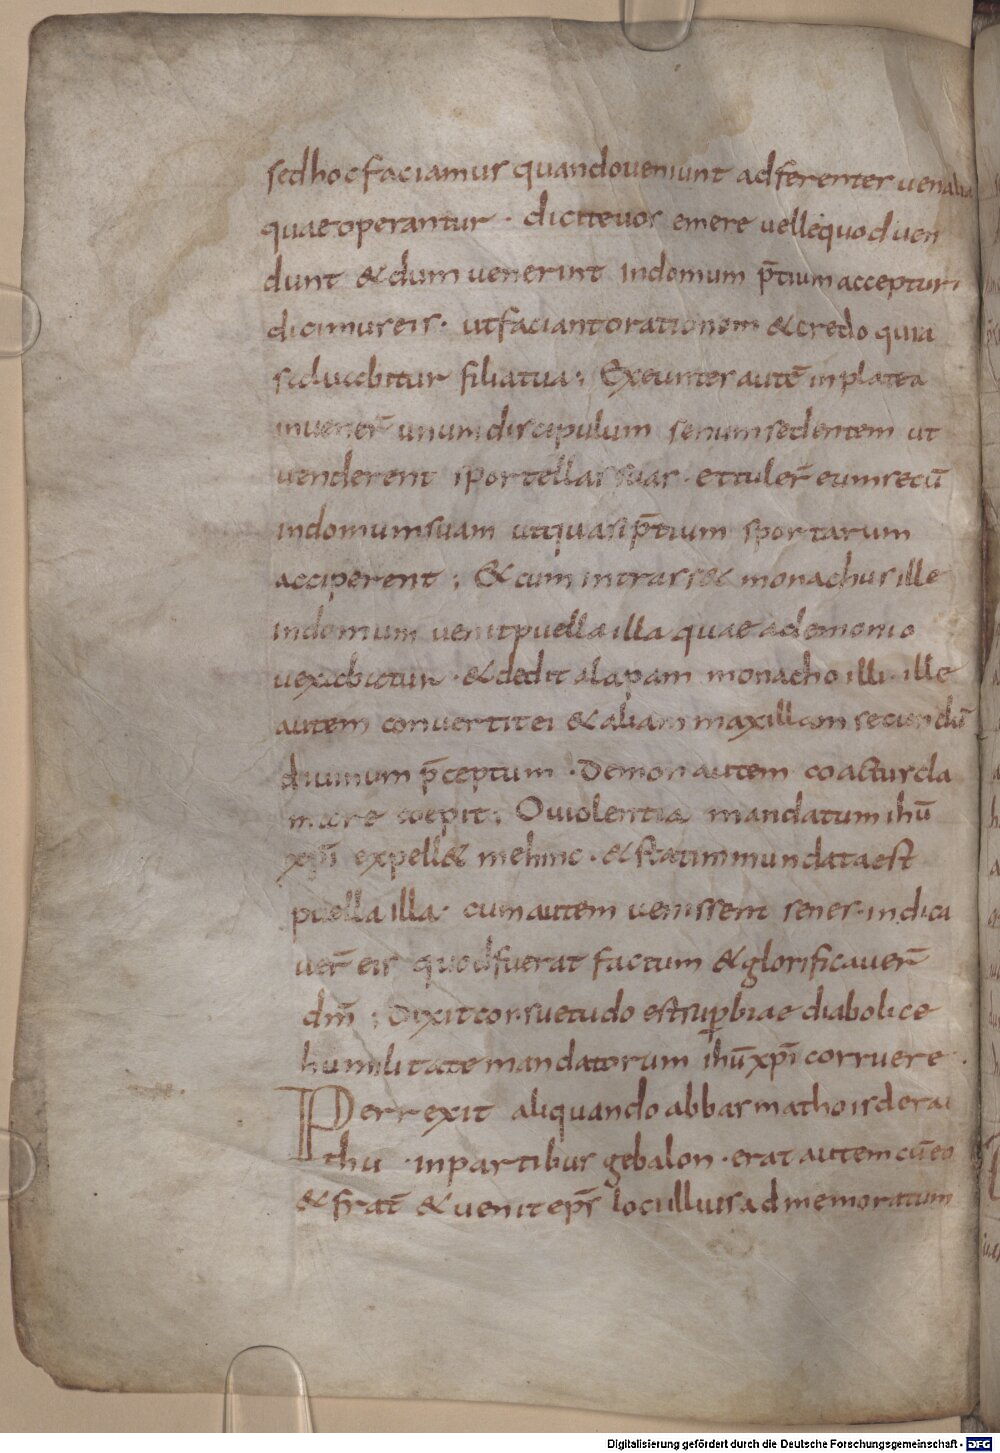 sed hoc faciamus quando veniunt ad ferentes venalia
quae operantur · dicite vos emere velle quod ven
dunt & dum venerint in domum p̄tium accepturi
dicimus eis · ut faciant orationem & credo quia
salvabitur filia tua ; Exeuntes autē in platea
invener̄ unum discipulum senum sedentem ut
venderent sportellas suas · et tuler̄ eum secū
in domum suam ut quasi p̄tium sportarum
acciperent ; & cum intrass& monachus ille
in domum venit puella illa quae a demonio
vexabatur · & dedit alapam monacho illi · ille
autem convertit ei & aliam maxillam secundū
divinum p̄ceptum · Demon autem coactus cla
mare coepit ; O violentia mandatum ihū
xpī expell& me hinc · & statim mundata est
puella illa · cum autem venissent senes · indica
ver̄ eis quod fuerat factum & glorificaver̄
dm̄ ; Dixit consuetudo est sup̱biae diabolice
humilitate mandatorum ihū xpī corruere ·
Perrexit aliquando abbas mathois de rai
thu · in partibus gebalon · erat autem cū eo
& frat̄ & venit eps̄ loci illius ad memoratum
Digitalisierung gefördert durch die Deutsche Forschungsgemeinschaft - DFG